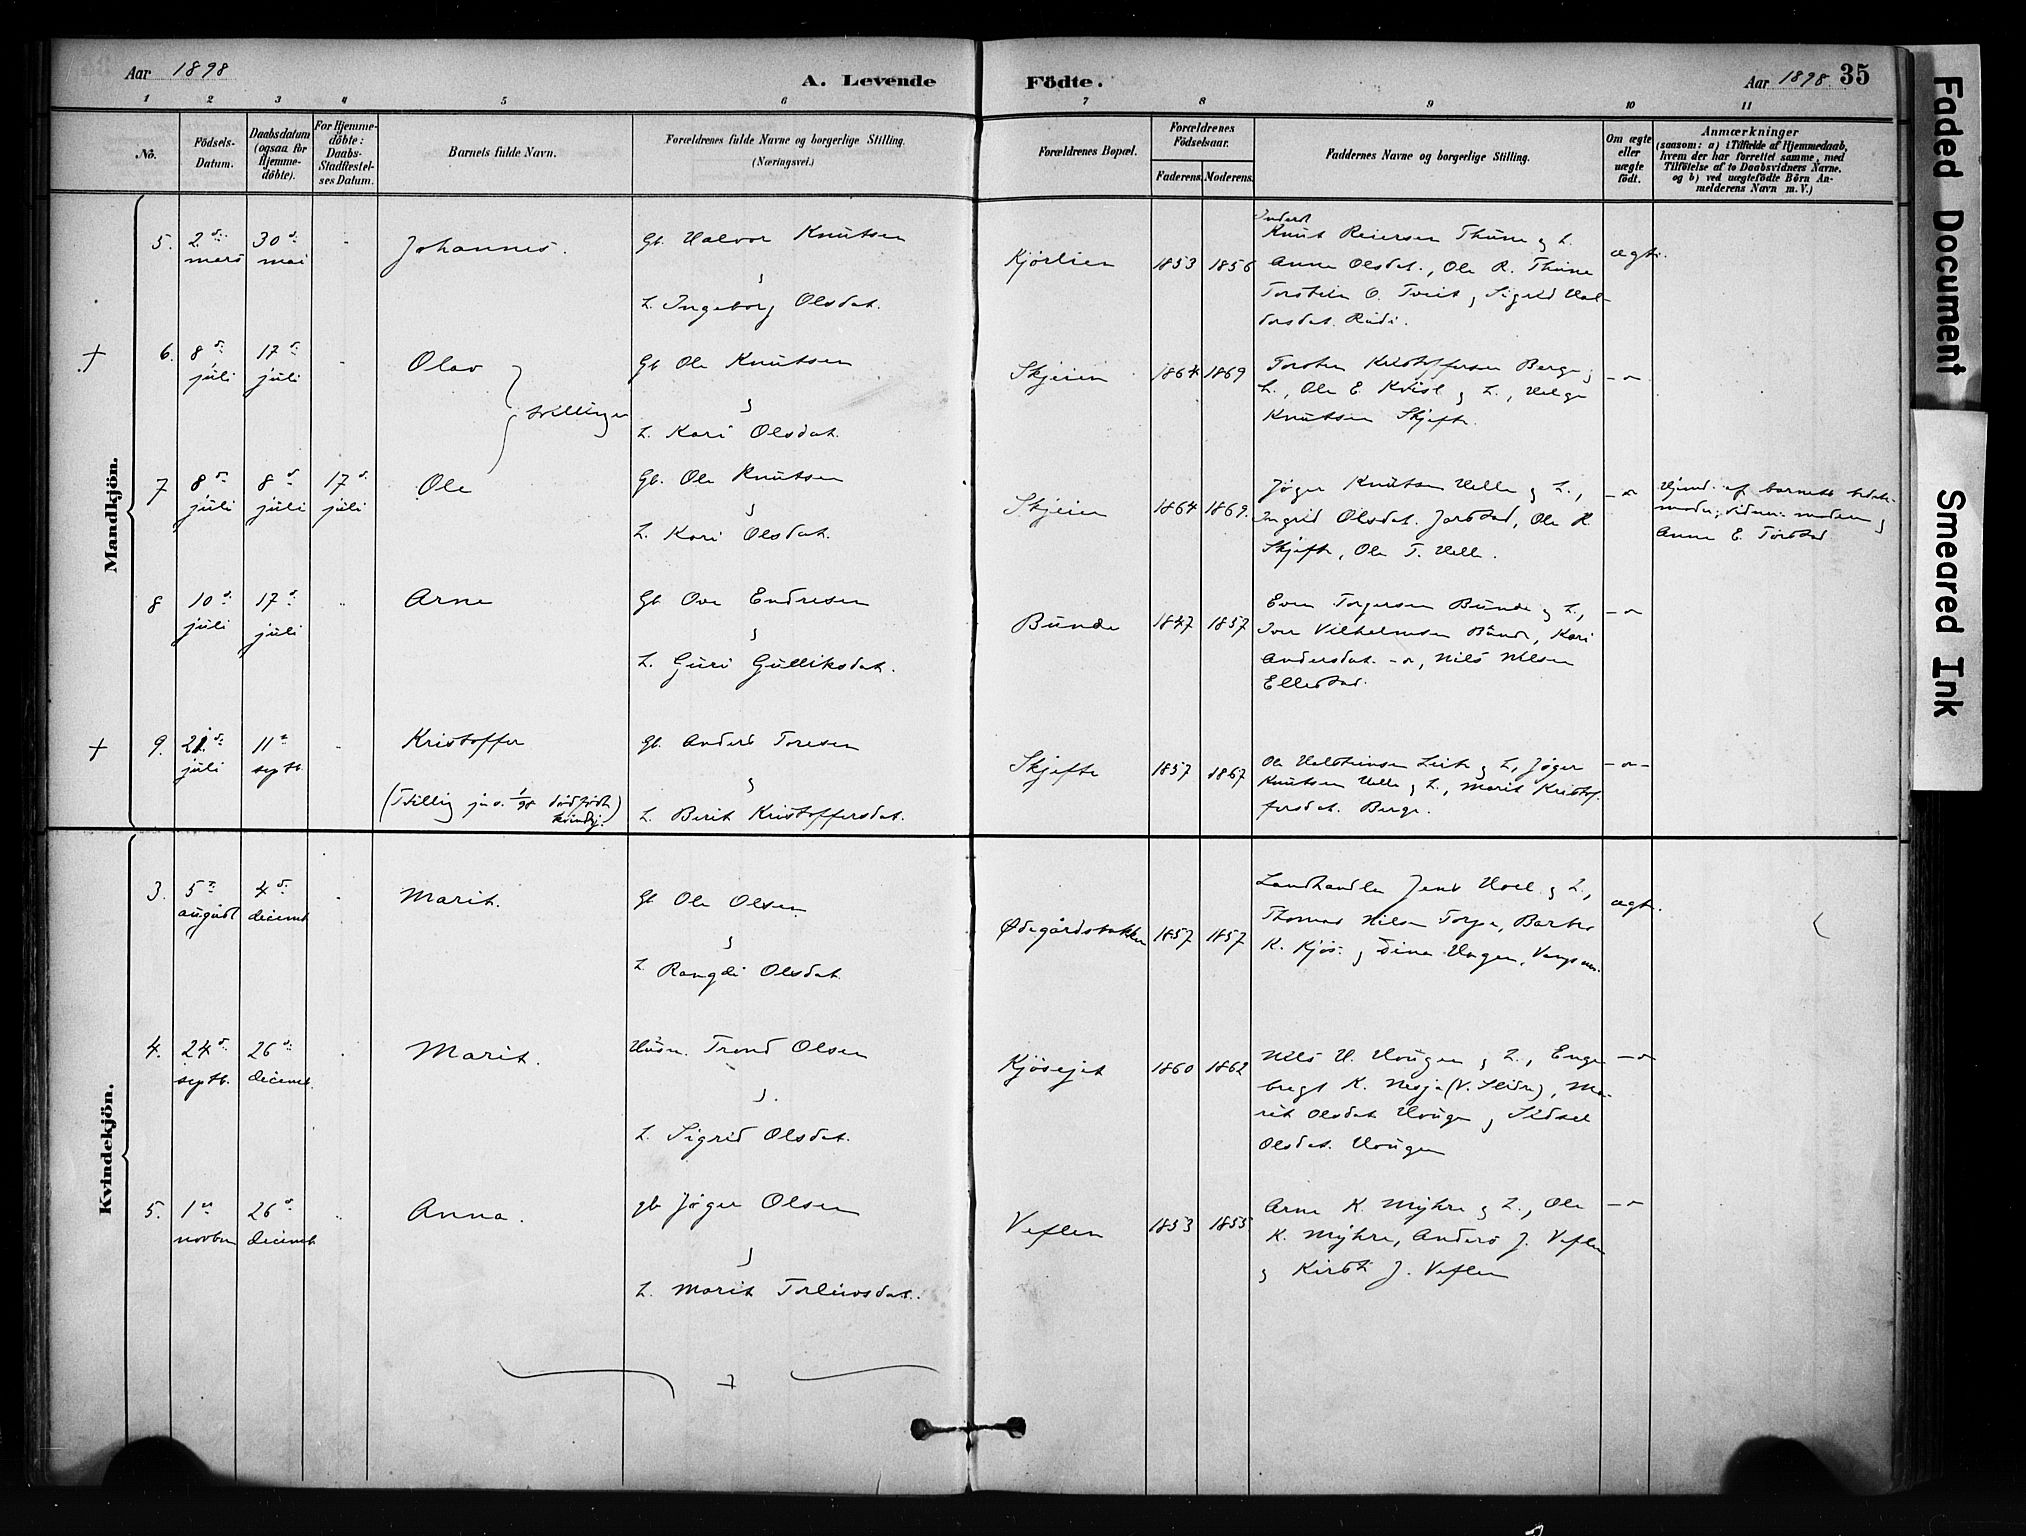 Aar 1898
A. Levende
Födte.
Aar 1898. 35
1 2 3 4 5 6 7 8 9 10 11
No.
Födsels-
Datum.
Daabsdatum
(ogsaa for
Hjemme-
döbte).
For Hjemme-
döbte:
Daabs-
Stadfæstel-
ses Datum.
Barnets fulde Navn.
Forældrenes fulde Navne og borgerlige Stilling.
(Næringsvei.)
Forældrenes Bopæl.
Forældrenes
Födselsaar.
Faderens. Moderens.
Faddernes Navne og borgerlige Stilling.
Om ægte
eller
uægte
födt.
Anmærkninger
(saasom: a) i Tilfælde af Hjemmedaab,
hvem der har forrettet samme, med
Tilföielse af to Daabsvidners Navne.
og b) ved uægtefödte Börn An-
melderens Navn m. V.)
Mandkjön.
5. 2d: mars 30d: mai Johannes.
Gb. Halvor Knutsen
&
h. Ingeborg Olsdat.
Kjørlien 1853 1856
Knut Reiersen Thune & h.
Anne Olsdat., Ole R. Thune
Torstein O. Tveit & Sigrid Hal-
dorsdat. Rudi.
ægte.
+ 6. 8d: juli 17d: juli Olav
tvillinger
Gb. Ole Knutsen
&
h. Kari Olsdat.
Skjeien 1864 1869
Torsten Kristoffersen Berge &
h., Ole E. Kvisl & h., Helge
Knutsen Skjefte.
-"-
7 8d: juli 8d: juli 17d. juli Ole
Gb. Ole Knutsen
&
h. Kari Olsdat.
Skjeien 1864 1869.
Jøger Knutsen Helle & h.,
Ingrid Olsdat. Jarstad, Ole K.
Skjefte, Ole T. Helle.
-"-
Hjemd. af barnets bedste-
moder, Vidner: moderen &
Anne E. Torstad
8 10d. juli 17d: juli Arne
Gb. Ove Endresen
&
h. Guri Gulliksdat.
Bunde 1847 1857
Even Torgersen Bunde & h.,
Iver Vilhelmsen Bunde, Kari
Andersdat. -"-, Nils Nilsen
Ellestad.
-"-
+ 9. 21d: juli 11te septb. Kristoffer
(Tvilling jvn. 1/98 dødfødte kvindkj.)
Gb. Anders Toresen
&
h. Berit Kristoffersdat.
Skjefte 1857 1867
Ole Halsteinsen Leite & h., Jøger
Knutsen Helle & h., Marit Kristof-
fersdat. Berge.
-"-
Kvindekjön.
3. 5te august 4d: decemb. Marit.
Gb Ole Olsen
&
h. Rangdi Olsdat.
Ødegårdsbakken 1857 1857
Landhandler Jens Hoel & h.,
Thomas Nilsen Torpe, Barbro
K. Kjøs & Dina Hagen,
ægte.
4. 24d: septb. 26d: decemb. Marit.
Husm. Trond Olsen
&
h. Sigrid Olsdat.
Kjøsejet 1860 1862
Nils H. Hougen & h., Enge-
bregt K. Nesja (V. Slidre), Ma-
rit Olsdat. Hougen & Sidsel
Olsdat. Hougen
-"-
5. 1ste novbr 26d. decemb. Anna.
gb. Jøger Olsen
&
h. Marit Torleivsdat.
Veflen 1853 1855
Arne K. Myhre & h., Ole
K. Myhre, Anders J. Veflen
& Kirsti J. Veflen
-"-
Faded Document
Smeared Ink